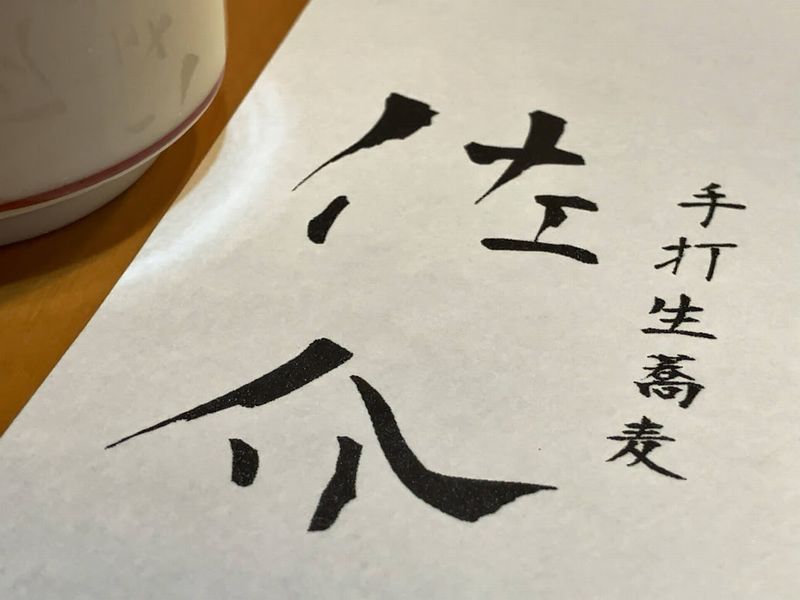 手打生蕎麦
佐介